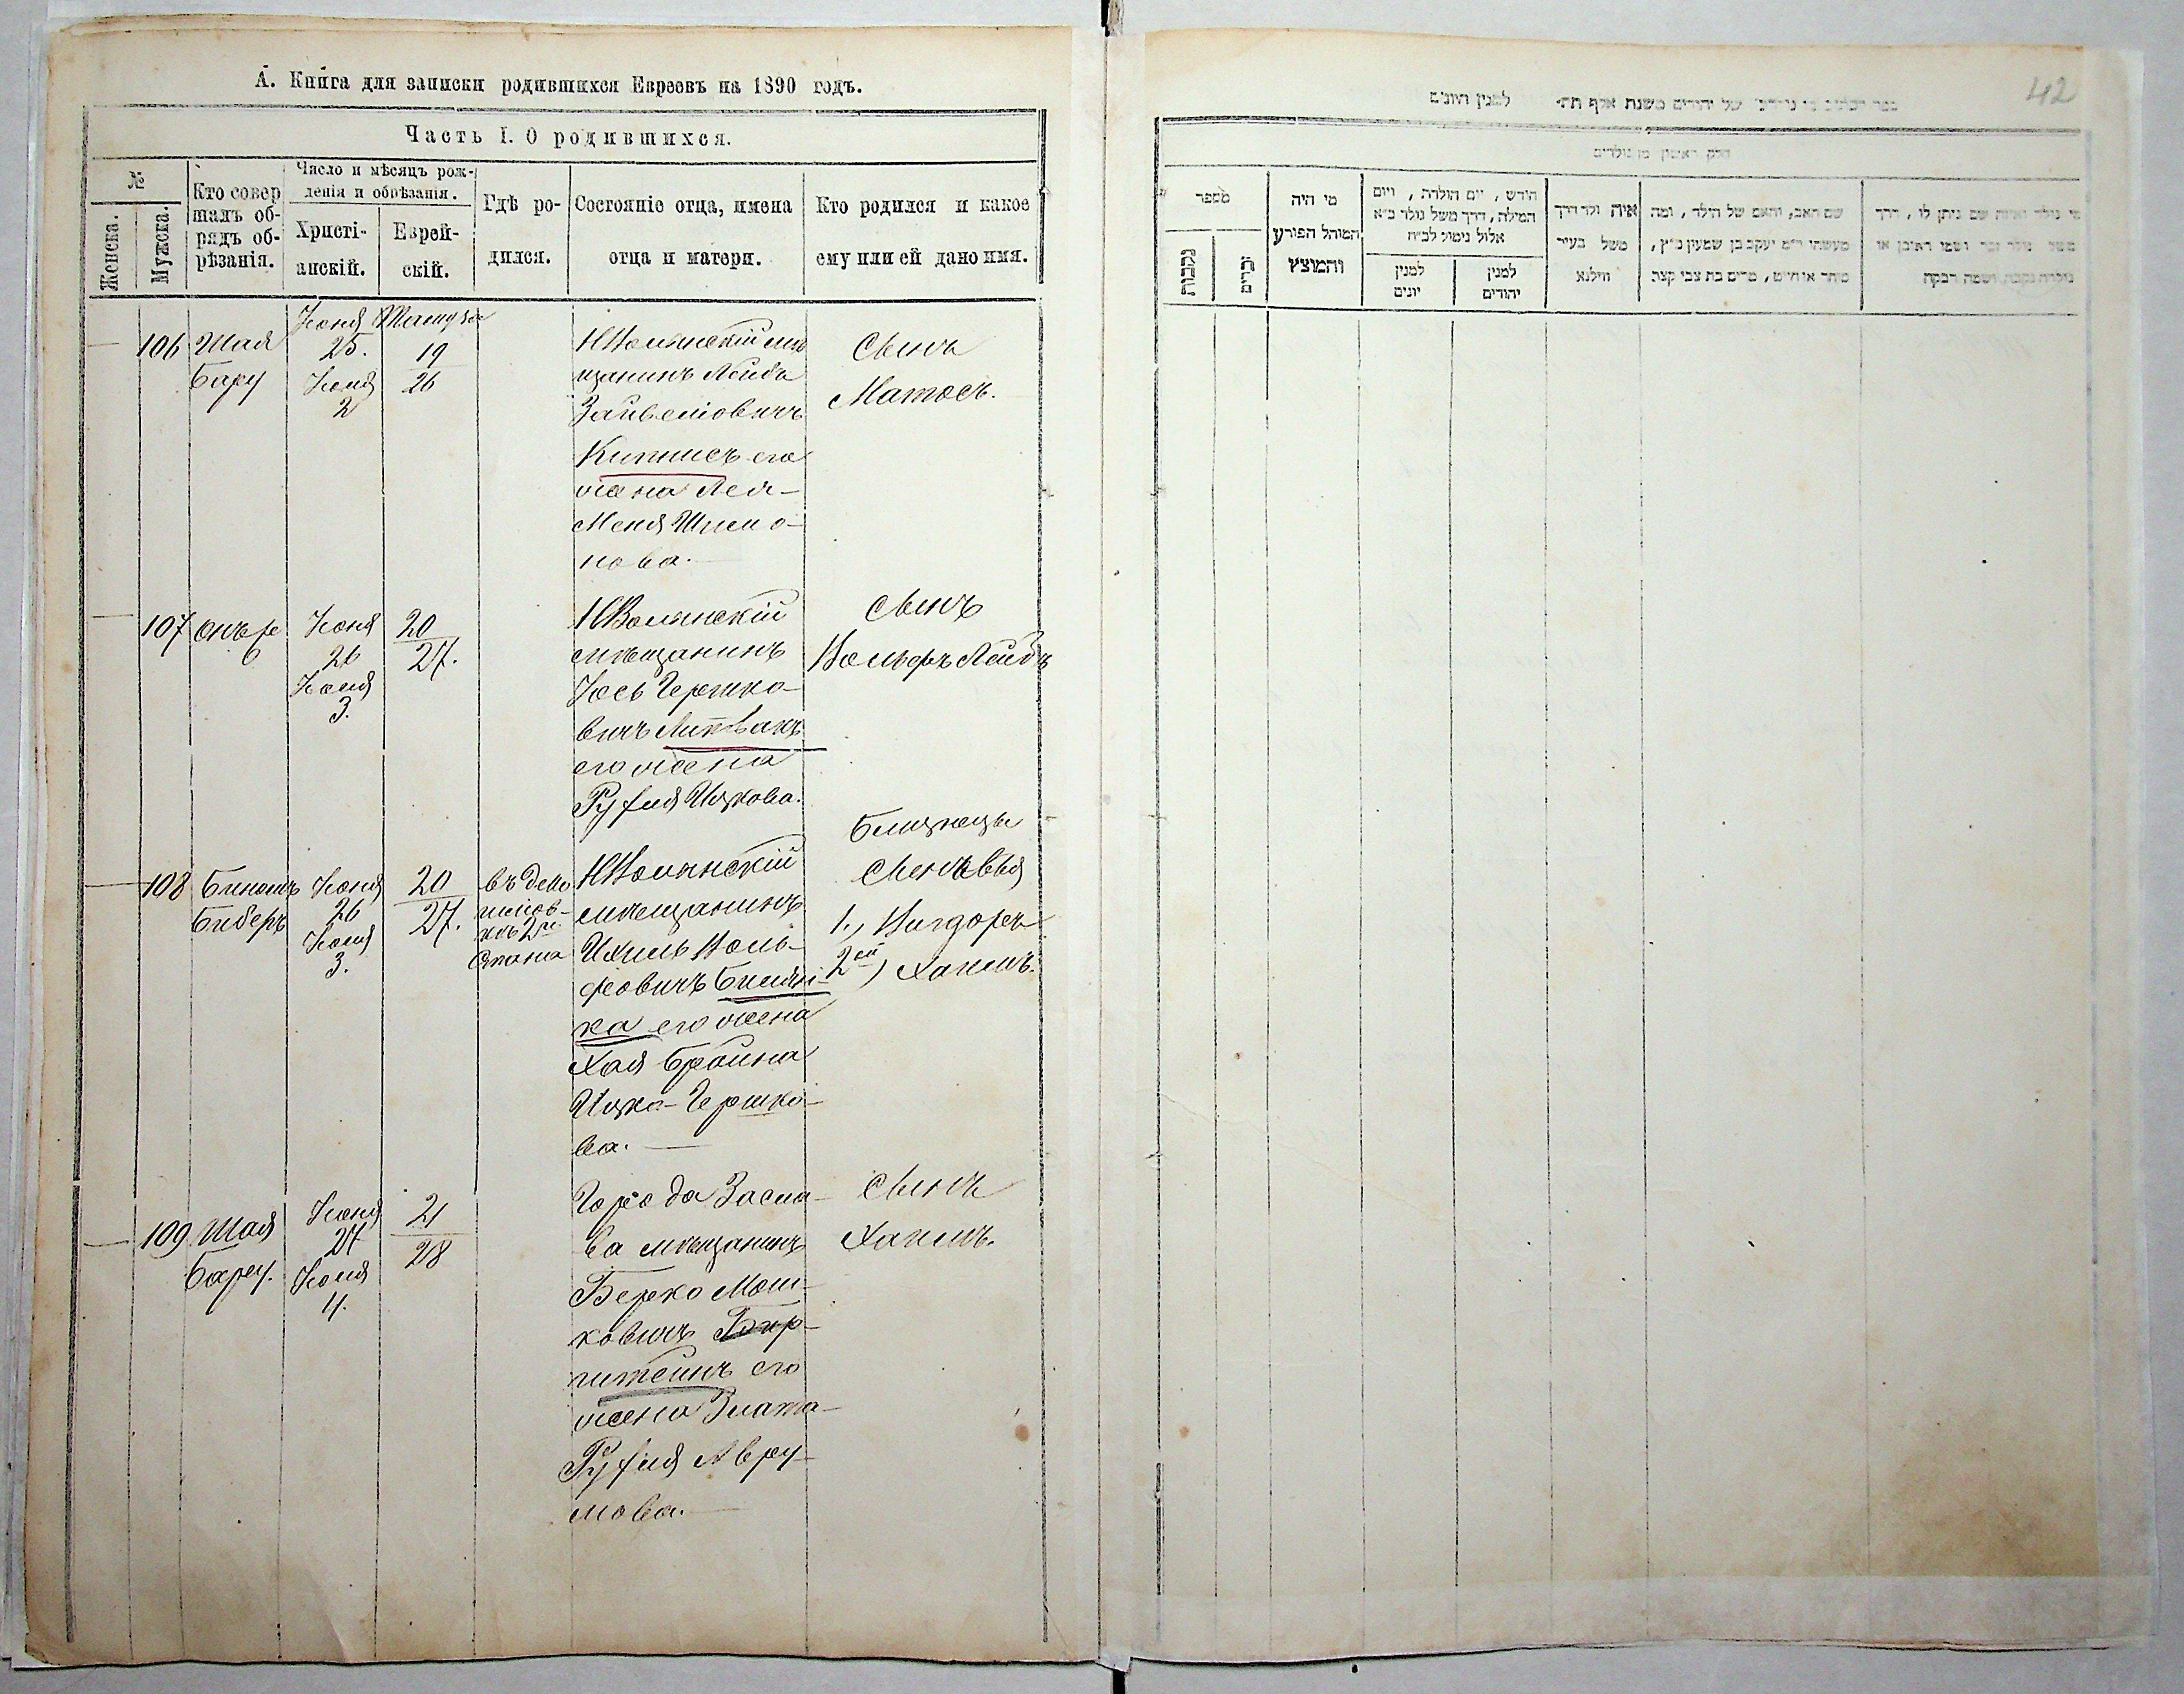 А. Книга для записки родившихся Евреевъ на 1890 годъ.
Часть I. О родившихся.
№
Женска.
Мужска.
Кто совер
шалъ об-
рядъ об-
рѣзанія.
Число и мѣсяцъ рож-
денія и обрѣзанія.
Христі-
анскій.
Еврей-
скій.
Гдѣ ро-
дился.
Состояніе отца, имена
отца и матери.
Кто родился и какое
ему или ей дано имя.
106
Шая
Бару
Іюня
25.
Іюля
2
Тамуза
19
26
НВолынскій мѣ
щанинъ Лейба
Зайвелiовичъ
Кипнисъ его
жена Лея-
Меня Шлемо-
нова.
Сынъ
Матосъ.
107
онъ же
Іюня
26
Іюля
3.
20
27.
НВолынскій
мѣщанинъ
Іось Гершко-
вичъ Литвакъ
его жена
Рухля Ицкова.
Сынъ
Вольфъ Лейбъ
108
Биномъ
Биберъ
Іюня
26
Іюля
3.
20
27.
2го
Стана
НВолынскій
мѣщанинъ
Ихиль Воль-
фовичъ Билян-
ка его жена
Хая Брайна
Ицко-Гершко-
ва.
Близнецы
Сыновья
1., Вигдоръ
2ой) Хаимъ.
109
Шая
Бару.
Іюня
27
Іюля
4.
21
28
Города Засла-
ва мѣщанинъ
Берко Мош-
ковичъ Бир-
штейнъ его
жена Злата-
Рухля Авру-
мова.
Сынъ
Хаимъ.
42
למנין היונים
של יהודים משנת אלף תת״
חלק ראשון מן נולדים
מספר
נקבות
זכרים
מי היה
המוהל הפורע
והמוצץ
חודש, יום הולדת, ויום
המילה, דרך משל נולד כ״א
אלול נימול לכ״ח
למנין
יונים
למנין
יהודים
איה ולד דרך
משל בעיר
ווילנא
שם האב, והאם של הילד, ומה
מעשהו ר״מ יעקב בן שמעון כ״ץ,
סוחר או חייט, מרים בת צבי קצב
מי נולד ואיזה שם ניתן לו, דרך
משל נולד זכר ושמו ראובן או
נולדה נקבה ושמה רבקה